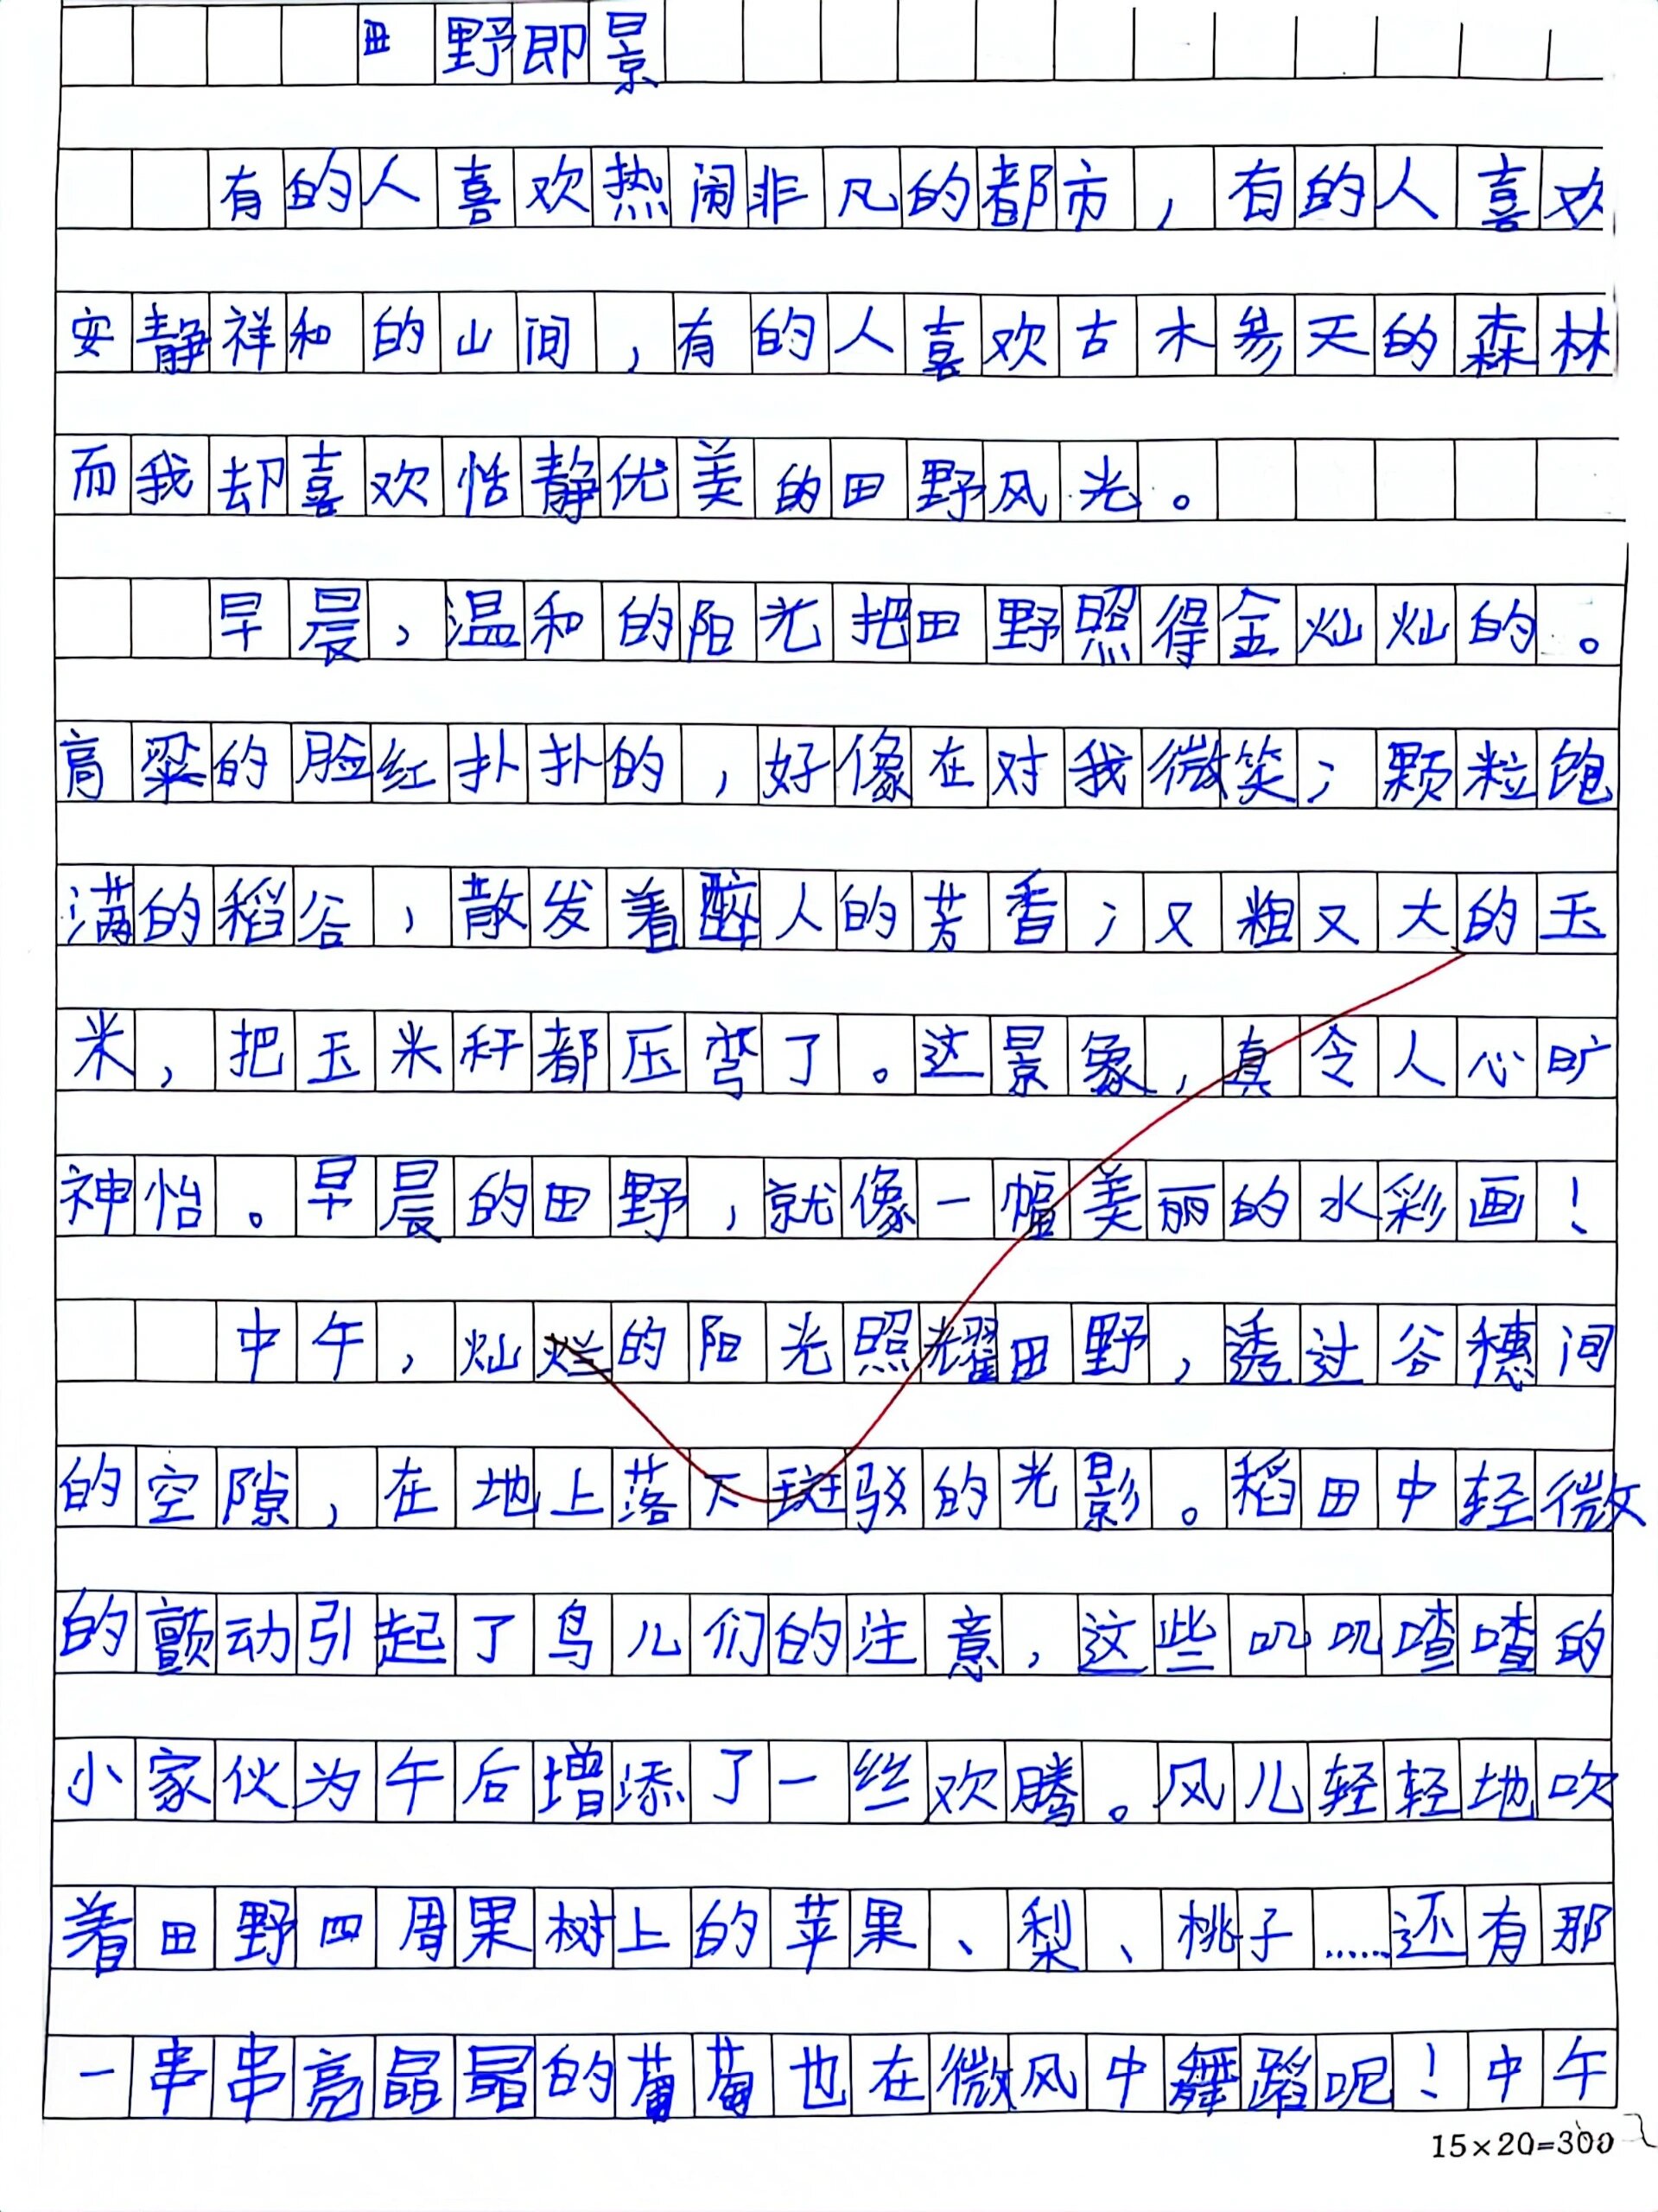 田野即景
有的人喜欢热闹非凡的都市，有的人喜欢
安静祥和的山间，有的人喜欢古木参天的森林
而我却喜欢恬静优美的田野风光。
早晨，温和的阳光把田野照得金灿灿的。
高粱的脸红扑扑的，好像在对我微笑；颗粒饱
满的稻谷，散发着醉人的芳香；又粗又大的玉
米，把玉米秆都压弯了。这景象，真令人心旷
神怡。早晨的田野，就像一幅美丽的水彩画！
中午，灿烂的阳光照耀田野，透过谷穗间
的空隙，在地上落下斑驳的光影。稻田中轻微
的颤动引起了鸟儿们的注意，这些叽叽喳喳的
小家伙为午后增添了一丝欢腾。风儿轻轻地吹
着田野四周果树上的苹果、梨、桃子……还有那
一串串亮晶晶的葡萄也在微风中舞蹈呢！中午
15×20=300